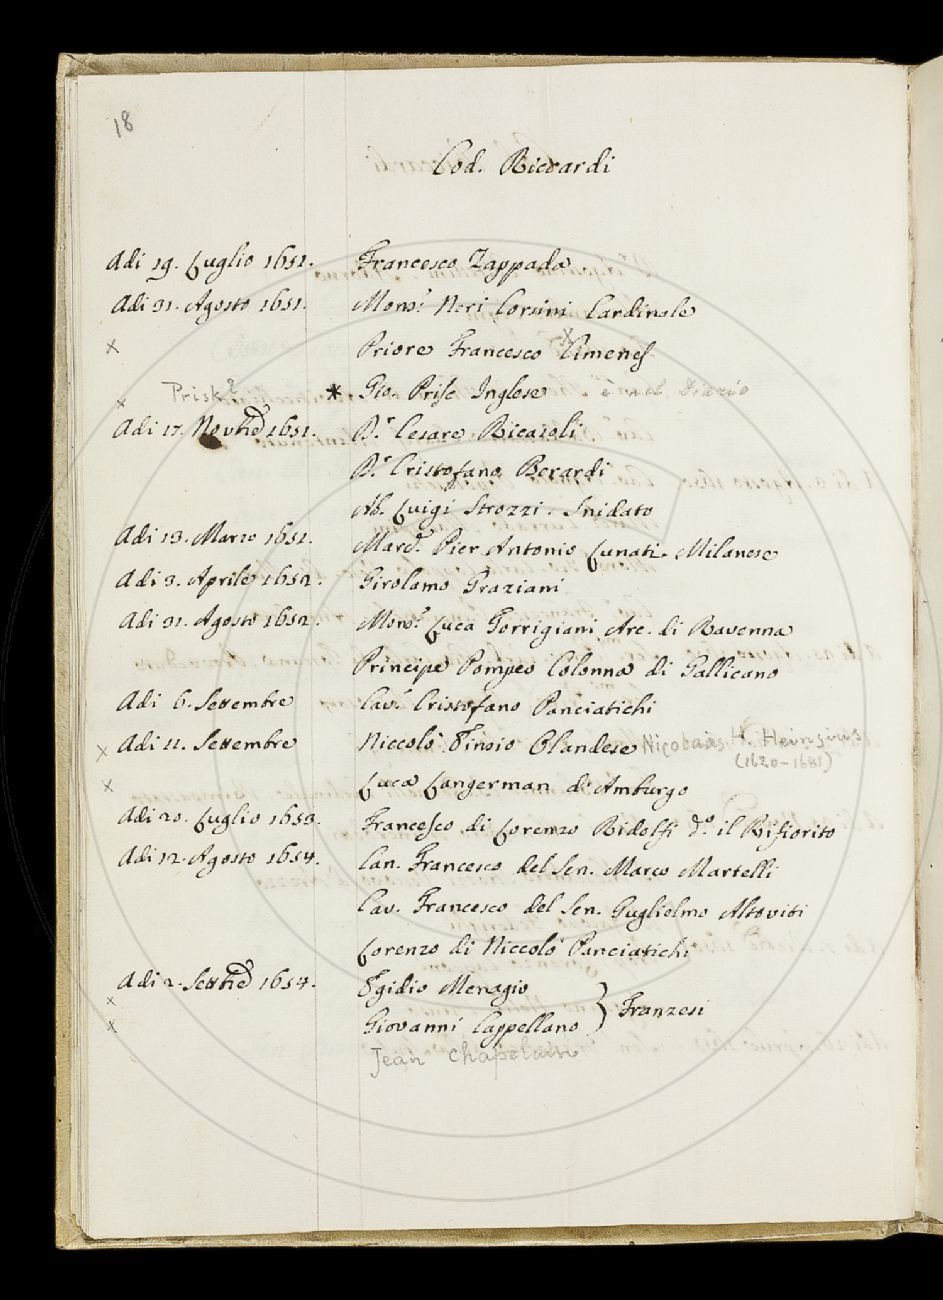 18
Cod. Riccardi
Adi 19. Luglio 1651. Francesco Zappada
Adi 31. Agosto 1651. Mons.r Neri Corsini Cardinale
x Priore Francesco Ximenes
x Prisk? * Gio. Prise Inglese è nel Diario
Adi 17. Novbre 1651. D.r Cesare Ricasoli
D.r Cristofano Berardi
Ab. Luigi Strozzi. Snidato
Adi 13. Marzo 1651. Marc. Pier Antonio Lunati Milanese
Adi 3. Aprile 1652. Girolamo Graziani
Adi 31. Agosto 1652. Mons.r Luca Torrigiani Arc. di Ravenna
Principe Pompeo Colonna di Gallicano
Adi 6. Settembre Cav. Cristofano Panciatichi
x Adi 11. Settembre Niccolò Einsio Olandese Nicolaas H. Heinsius
(1620-1681)
x Luca Langerman d'Amburgo
Adi 20. Luglio 1653. Francesco di Lorenzo Ridolfi d.o il Rifiorito
Adi 12. Agosto 1654. Can. Francesco del Sen. Marco Martelli
Cav. Francesco del Sen. Guglielmo Altoviti
Lorenzo di Niccolò Panciatichi
Adi 2. Settbre 1654. Egidio Menagio
x Giovanni Cappellano } Franzesi
x Jean Chapelain